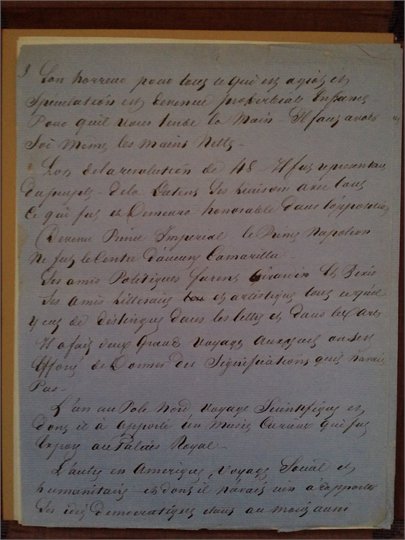 3 Son horreur pour tous ce qui est agiot et
Speculation est devenue proverbiale
Pour qu'il vous tende la main Il faut avoir
Soi meme les mains Nettes
Lors de la revolution de 48 Il fut representant
du peuple de la liaison avec tous
Ce qui fut et Demeura honorable dans l'opposition
Devenu Prince Imperial le Prince Napoleon
Ne fut le Centre d'aucune Camarilla
Ses amis Politiques furent Girardin
Ses amis Litteraires et artistiques tous ce qu'il
y eut de distingue dans les lettres et dans les arts
Il a fait deux Grand Voyages Auxquels on s'est
Efforce de Donner des Significations qu'ils n'avais
Pas
L'un au Pole Nord, Voyage Scientifique et
dont il a apporte un Musee Curieux qui fut
Expose au Palais Royal
L'autre en Amerique, Voyage Social et
humanitaire et dont il n'avais rien a rapporter
Ses idees democratiques etant au moins aussi